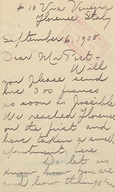 # 10 Via
Florence Italy
September 6, 1908.
Dear Mr.
Will
you please send
me 300 francs
as soon as possible
We reached Florence
on the first and
have taken a small
apartment here
Do let us
know how you are
and how things